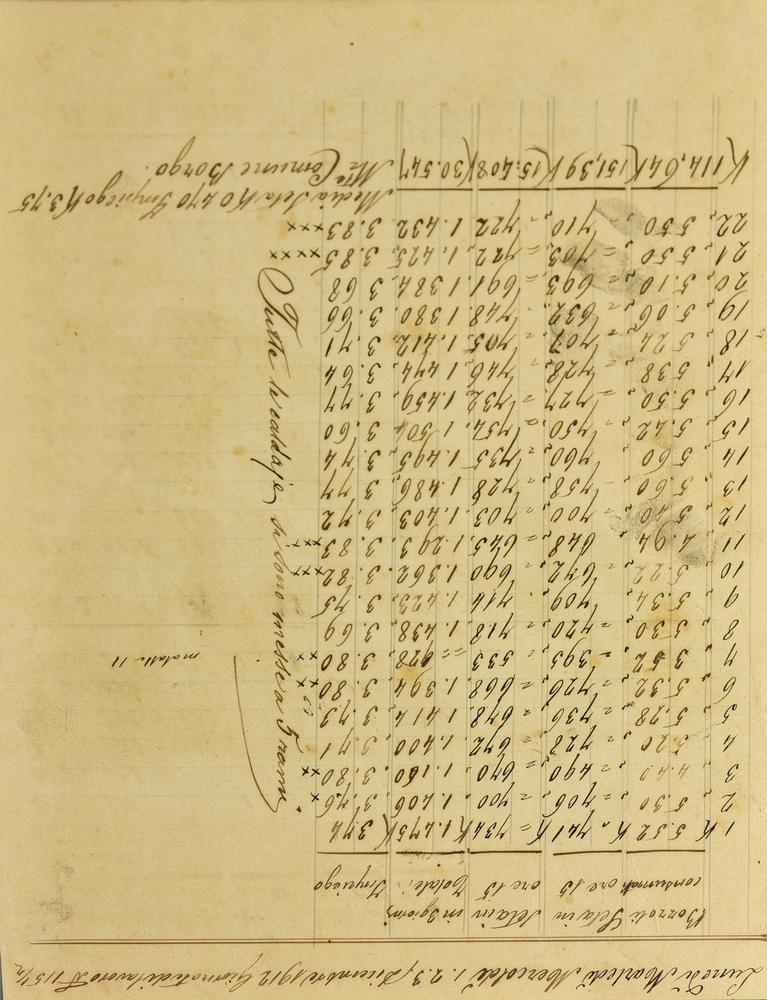 Lunedì Martedì Mercoldì 1. 2. 3. Dicembre 1912 Giornate di lavoro N 115 1/2
Bozzoli consumati Seta in ore 15 Seta in ore 15 Totale in 3 giorni Impiego
1 K 5.52 K. 741 K = 734 K 1.475 K 3 74
2 5.30 „ 706 „ = 700 1.406 3.76 x
3 4.40 „ 490 „ = 670 1.160 3.80 xx
4 5.20 „ 728 „ = 672 1.400 3.71
5 5.28 „ 736 „ = 678 1.414 3.73
6 5.32 „ 726 „ = 668 1.394 3.80 xx
7 3.52 „ 395 „ = 533 „ = 928 3.80 xx malatt 11
8 5.30 „ 720 „ = 718 „ 1.438 3.69
9 5.34 „ 709 „ 714 1.423 3.75
10 5.22 „ 672 „ = 690 1.362 3.82 xxx
11 4.94 „ 648 „ = 645 1.293 3.83 xxx
12 5.10 „ 700 „ = 703 1.403 3.72
13 5.60 „ 758 „ 728 1.486 3 77
14 5.60 „ 760 „ 735 1.495 3 74
15 5.42 „ 750 „ = 754 1 504 3.60
16 5.50 „ 727 „ = 732 1.459 3.77
17 5.38 „ 728 „ 746 1.474 3.64
18 5.24 „ 707 „ 705 1.412 3.71
19 5.06 „ 632 „ 748 1.380 3.66
20 5.10 „ 693 „ 691 1.384 3 68
21 5.50 „ = 703 „ = 722 1.425 3.85 xxxx
22 5.50 „ 710 „ 722 1.432 3.83 xxx
K 114,64 K 151,39 K 15.408 K 30.547
Media Seta K 0 470 Impiego K 3,75
Comune Borgo.
Tutte le caldaje si sono messe a 5 rami